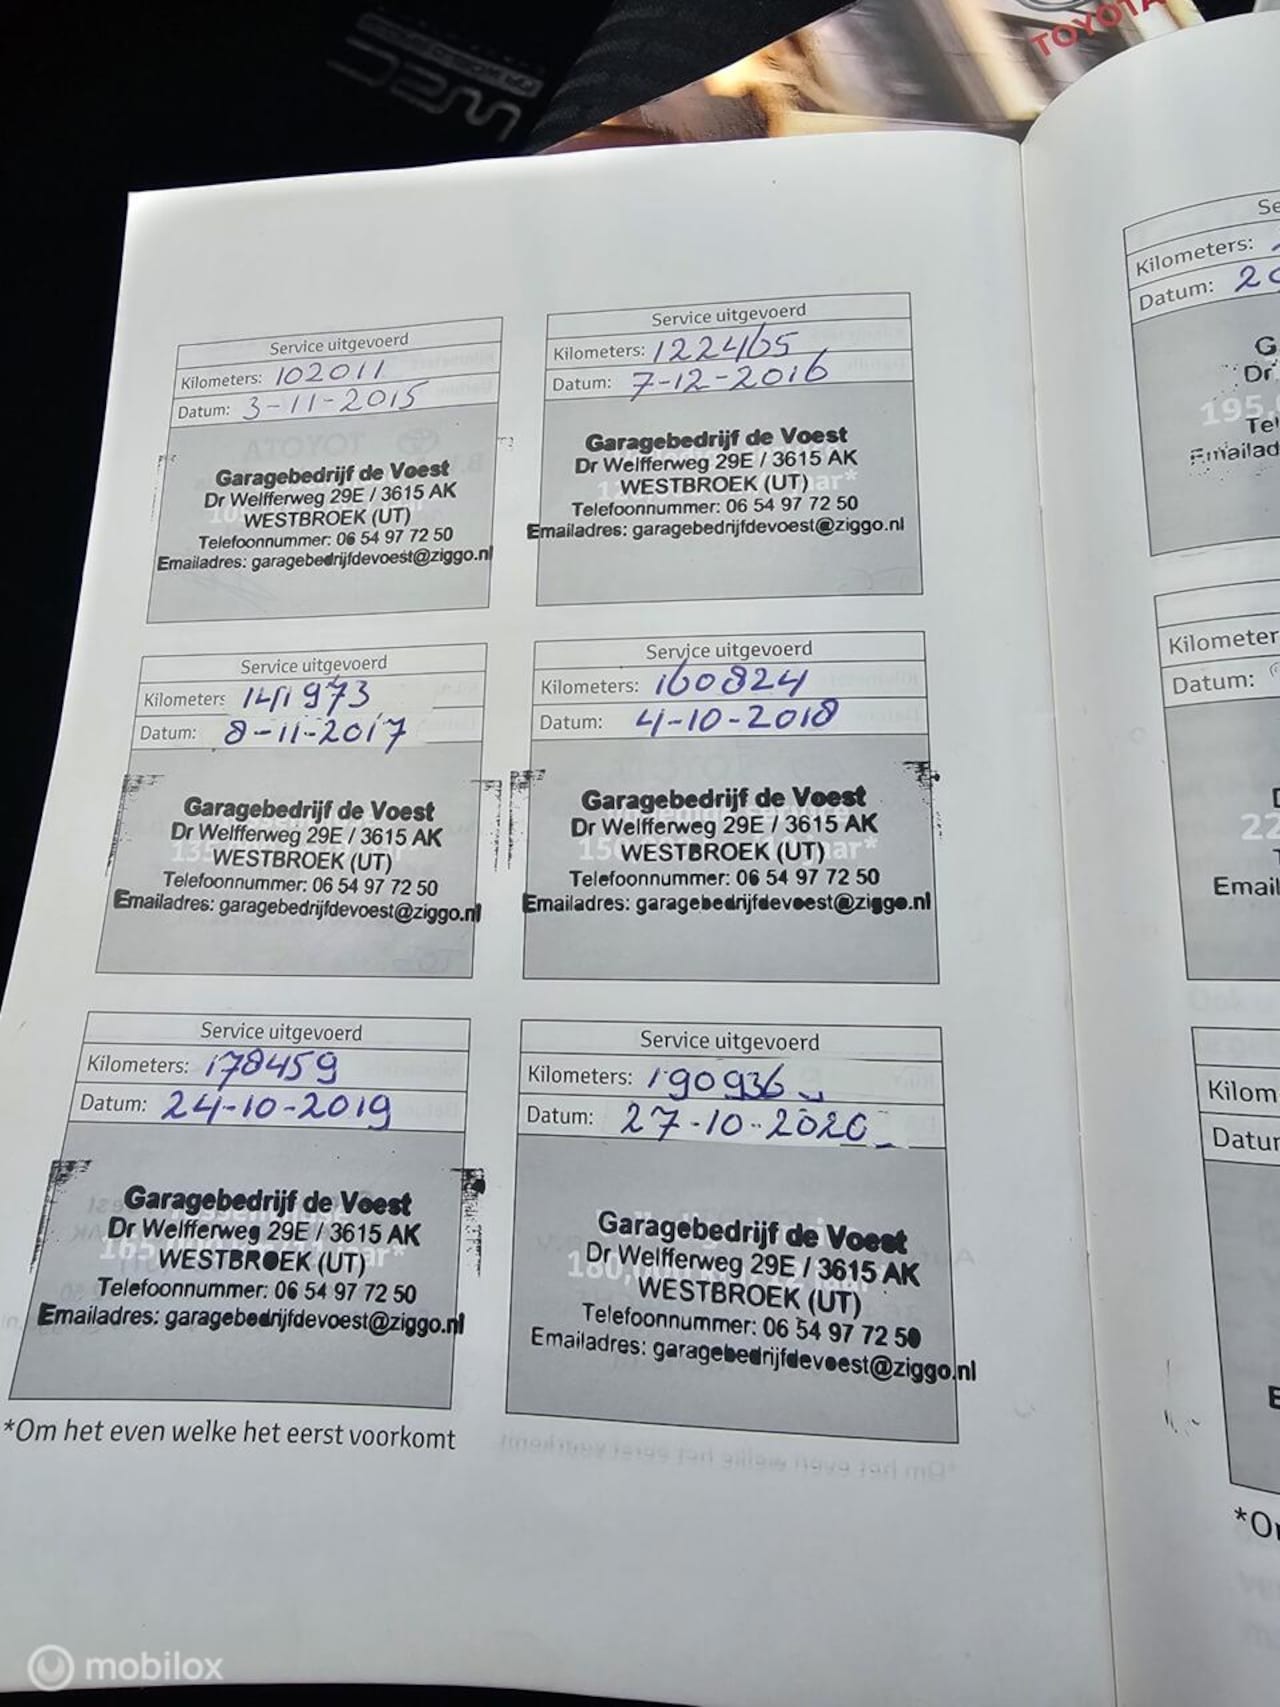 TOYOTA
Service uitgevoerd
Kilometers: 102011
Datum: 3-11-2015
Garagebedrijf de Voest
Dr Welfferweg 29E / 3615 AK
WESTBROEK (UT)
Telefoonnummer: 06 54 97 72 50
Emailadres: garagebedrijfdevoest@ziggo.nl
Service uitgevoerd
Kilometers: 122465
Datum: 7-12-2016
Garagebedrijf de Voest
Dr Welfferweg 29E / 3615 AK
WESTBROEK (UT)
Telefoonnummer: 06 54 97 72 50
Emailadres: garagebedrijfdevoest@ziggo.nl
Service uitgevoerd
Kilometers 141973
Datum: 8-11-2017
Garagebedrijf de Voest
Dr Welfferweg 29E / 3615 AK
WESTBROEK (UT)
Telefoonnummer: 06 54 97 72 50
Emailadres: garagebedrijfdevoest@ziggo.nl
Service uitgevoerd
Kilometers: 160824
Datum: 4-10-2018
Garagebedrijf de Voest
Dr Welfferweg 29E / 3615 AK
WESTBROEK (UT)
Telefoonnummer: 06 54 97 72 50
Emailadres: garagebedrijfdevoest@ziggo.nl
Service uitgevoerd
Kilometers: 178459
Datum: 24-10-2019
Garagebedrijf de Voest
Dr Welfferweg 29E / 3615 AK
WESTBROEK (UT)
Telefoonnummer: 06 54 97 72 50
Emailadres: garagebedrijfdevoest@ziggo.nl
Service uitgevoerd
Kilometers: 190936
Datum: 27-10-2020
Garagebedrijf de Voest
Dr Welfferweg 29E / 3615 AK
WESTBROEK (UT)
Telefoonnummer: 06 54 97 72 50
Emailadres: garagebedrijfdevoest@ziggo.nl
*Om het even welke het eerst voorkomt
Kilometers:
Datum: 20
Dr
195,
Tel
Emailad
Kilometer
Datum:
22
Email
Kilom
Datu
mobilox